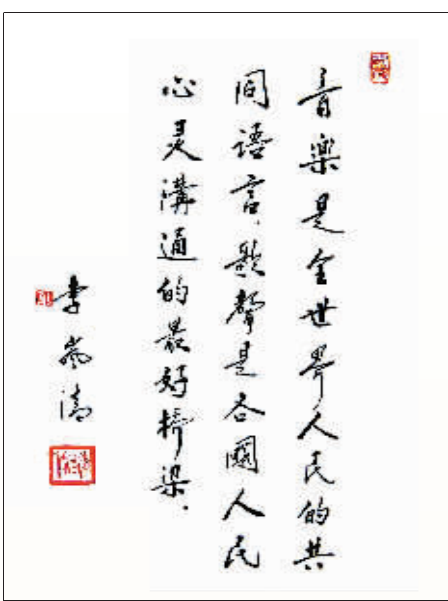 音樂是全世界人民的共
同語言,歌聲是各國人民
心灵溝通的最好橋梁.
李嵐清